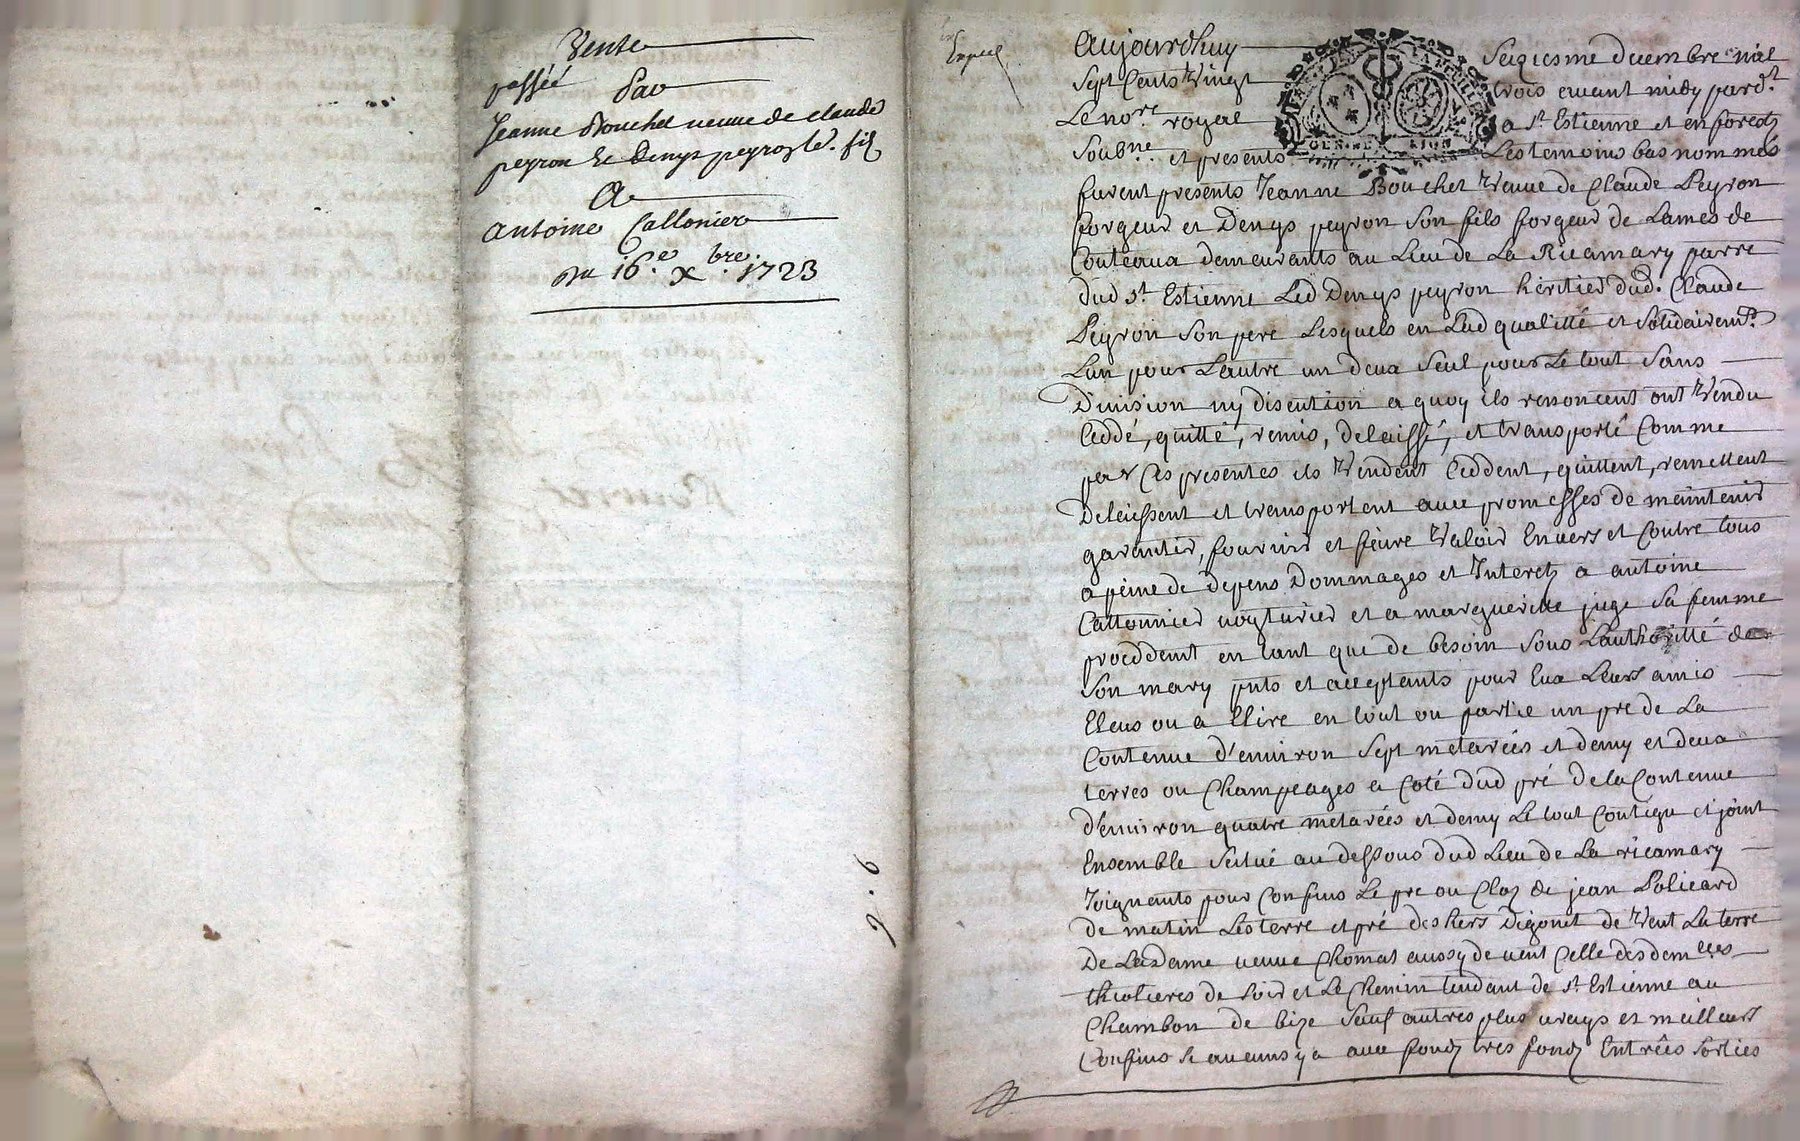 Vente
passée
Par
Jeanne Bouchet veuve de claude
peyron et denys peyron fils
A
Antoine Callonier
Du 16.e Xbre. 1723
2.6
Expié
Aujourdhuy Seiziesme decembre mil
Sept Cents Vingt trois avant midy pard.t
Le no.re royal a St Estienne et en foretz
Soubne. et presents Les temoins bas nommés
furent presents Jeanne Bouchet Veuve de Claude Peyron
forgeur et Denys peyron Son fils forgeur de Lames de
Couteaux demeurants au Lieu de La Ricamary parre
dud St. Estienne Led Denys peyron heritier dud. Claude
Peyron Son pere Lesquels en Lad qualitté et Solidairemt.
Lun pour Lautre un deux Seul pour Le tout Sans
Division ny discution a quoy ils renoncent ont Vendu
Ceddé, quitté, remis, delaissé, et transporté Comme
par Ces presentes ils Vendent Ceddent, quittent, remettent
Delaissent et transportent avec promesses de maintenir
garantir, fournir et faire Valoir Envers et Contre tous
a peine de depens Dommages et Interetz a antoine
Callonnier voyturier et a margueritte juge Sa femme
proceddent en tant que de besoin Sous Lauthoritté de
Son mary pnts et acceptants pour Eux Leurs amis
Eleus ou a Elire en tout ou partie un pre de La
Contenue d'environ Sept metarées et demy et deux
terres ou Champeages a Coté dud pré de la Contenue
d'environ quatre metarées et demy Le tout Contigu et joint
Ensemble Scitué au dessous dud Lieu de La ricamary
Joignants pour Confins Le pre ou Cloz de jean Policard
de matin Les terre et pré des hers Digonet de Vent La terre
De La Dame veuve Chomat aussy de vent Celle des demlles
thiolieres de Soir et Le Chemin tendant de St. Estienne au
Chambon de bize Sauf autres plus vrays et meilleurs
Confins Si aucuns y a avec fondz tres fondz Entrées Sorties